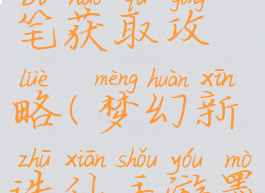 笔获取攻
lüè mèng huàn xīn
略(梦幻新
zhū xiān shǒu yóu mò
诛仙手游墨